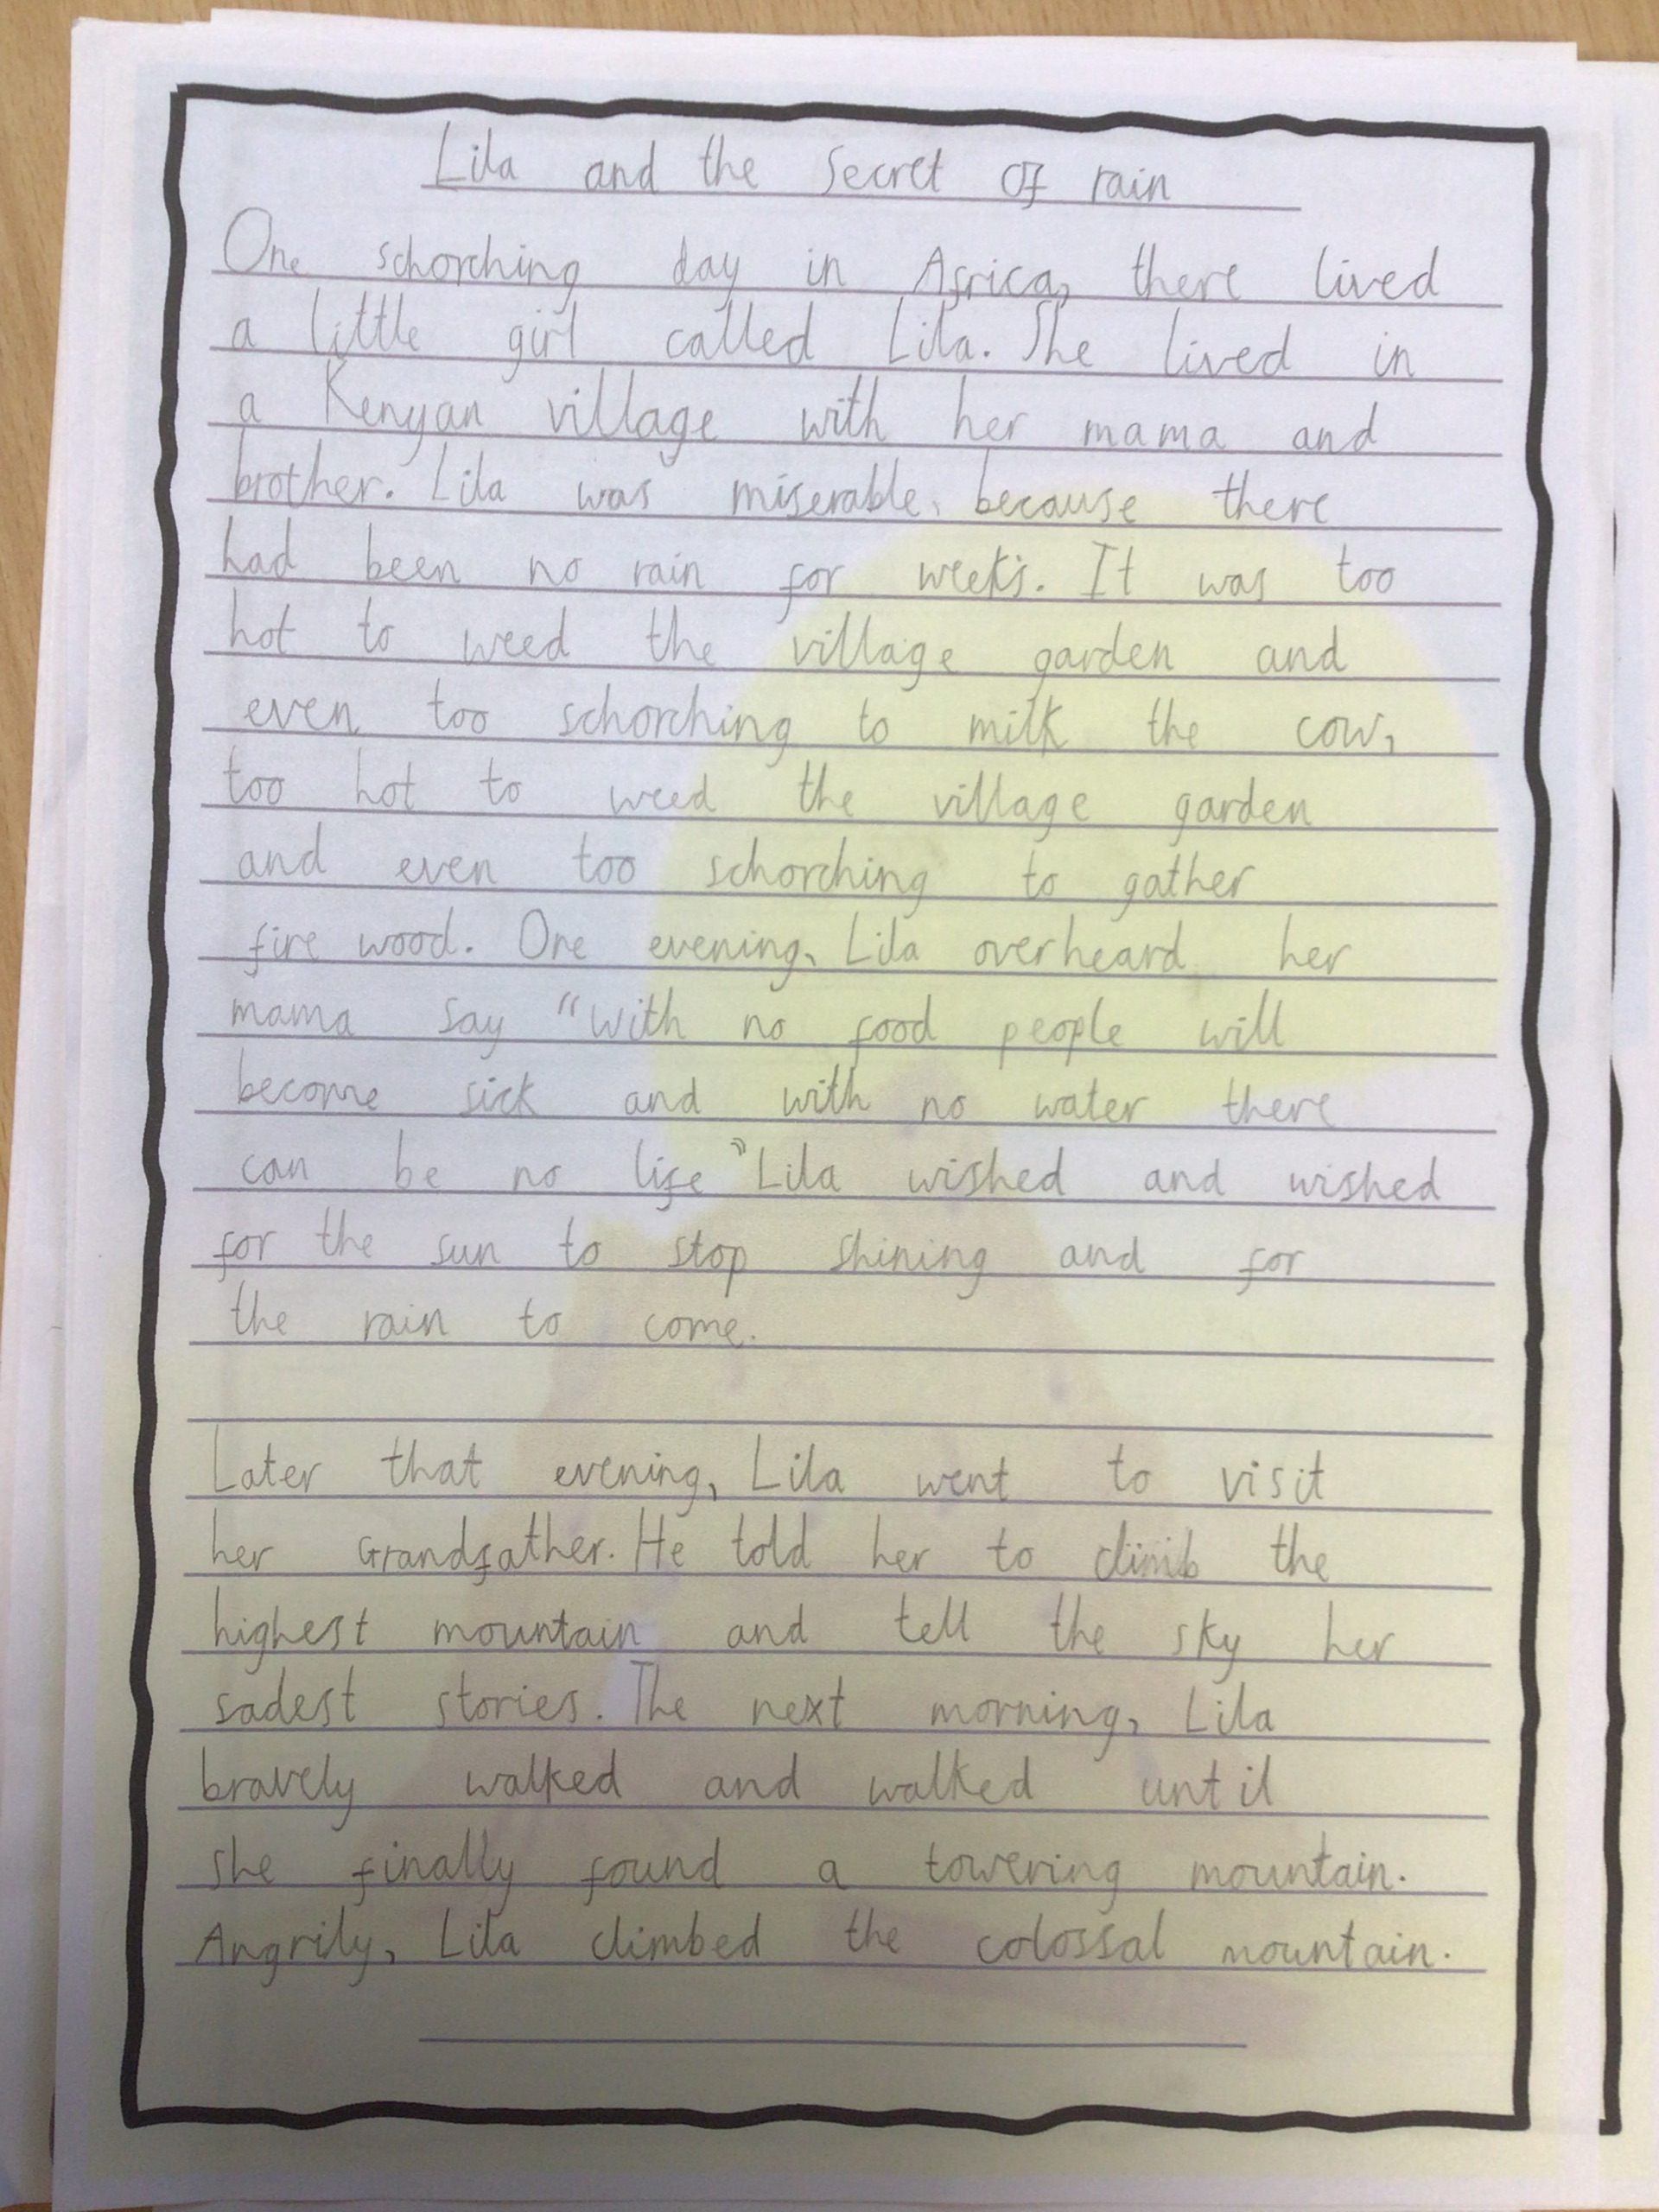 Lila and the Secret of rain
One schorching day in Africa, there lived
a little girl called Lila. She lived in
a Kenyan village with her mama and
brother. Lila was miserable, because there
had been no rain for weeks. It was too
hot to weed the village garden and
even too schorching to milk the cow,
too hot to weed the village garden
and even too schorching to gather
fire wood. One evening, Lila overheard her
mama say "With no food people will
become sick and with no water there
can be no life" Lila wished and wished
for the sun to stop shining and for
the rain to come.
Later that evening, Lila went to visit
her Grandfather. He told her to climb the
highest mountain and tell the sky her
sadest stories. The next morning, Lila
bravely walked and walked until
she finally found a towering mountain.
Angrily, Lila climbed the colossal mountain.